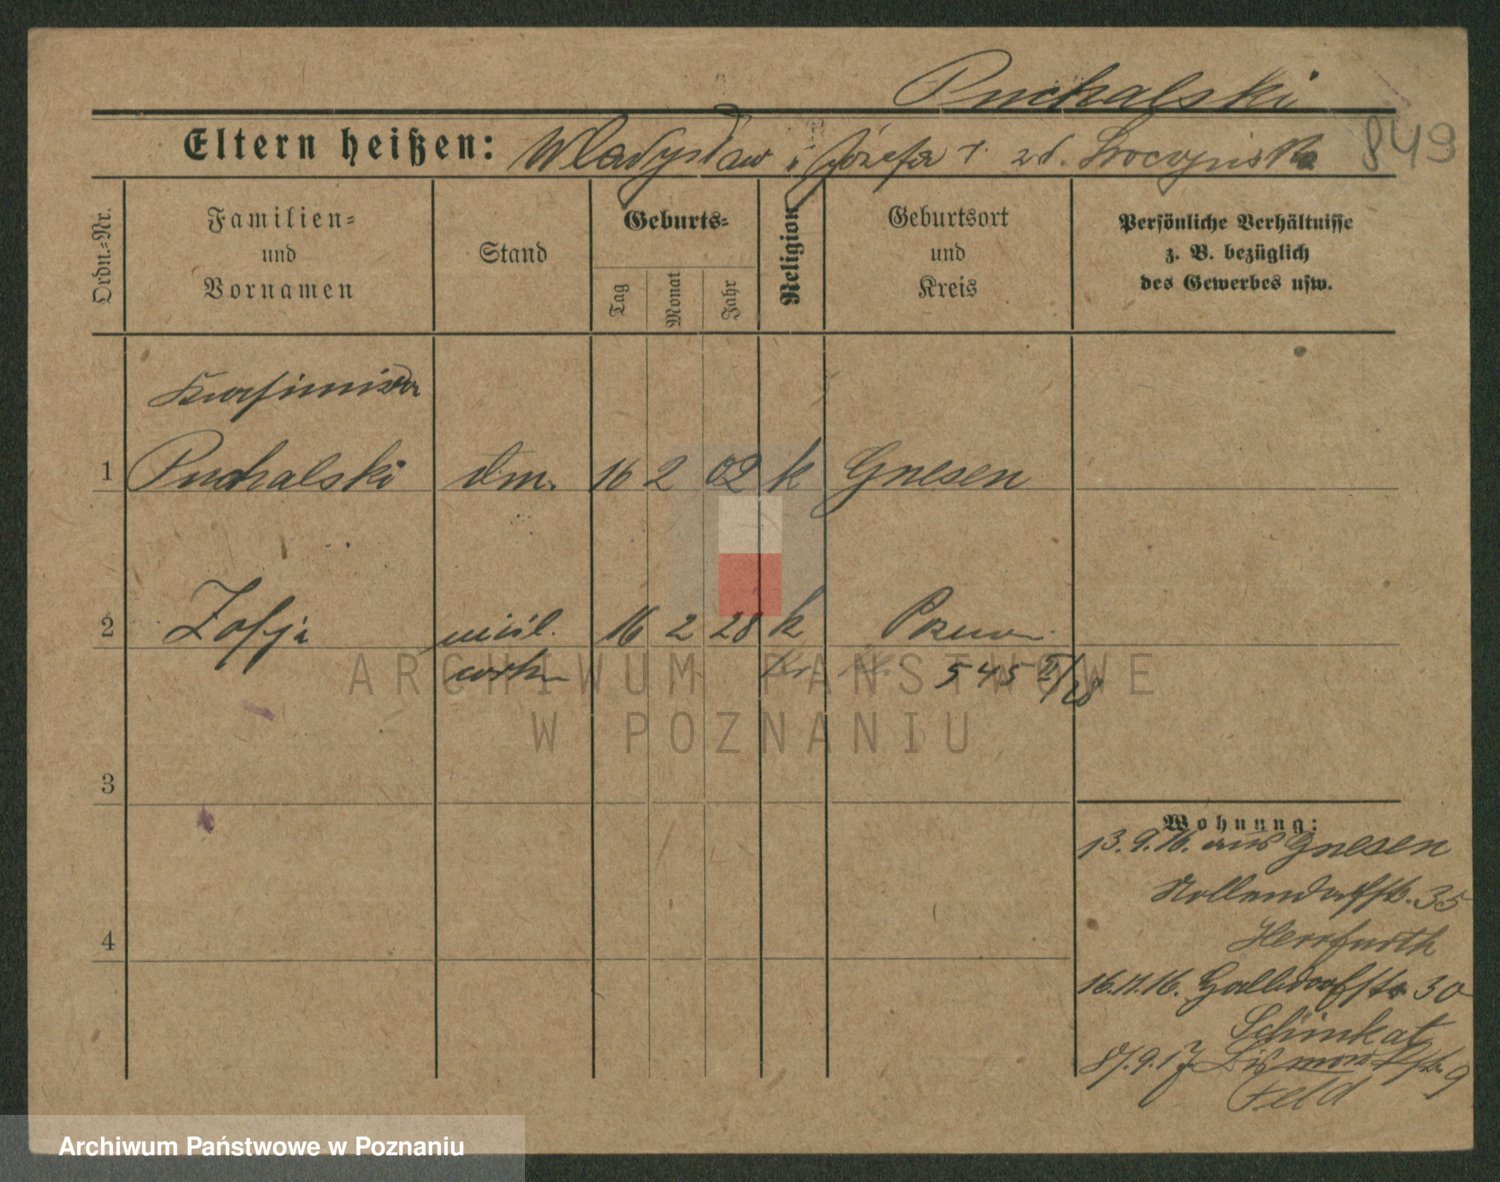 Puchalski
Eltern heißen: Władysław i Józefa r. zd. 849
Ordn.=Nr.
Familien=
und
Vornamen
Stand
Geburts=
Tag
Monat
Jahr
Religion
Geburtsort
und
Kreis
Persönliche Verhältnisse
z. B. bezüglich
des Gewerbes usw.
1 Puchalski dm. 16 2 02 k Gnesen
2 Zofja nieśl. 16 2 28 k
córka 545 II/28
ARCHIWUM PAŃSTWOWE
W POZNANIU
3
4
Wohnung:
13.9.16. aus Gnesen
Nollendorfstr. 35
Herrfurth
16.11.16. 30
Schinkat
8/.9.17 Bismarckstr. 9
Feld
Archiwum Państwowe w Poznaniu